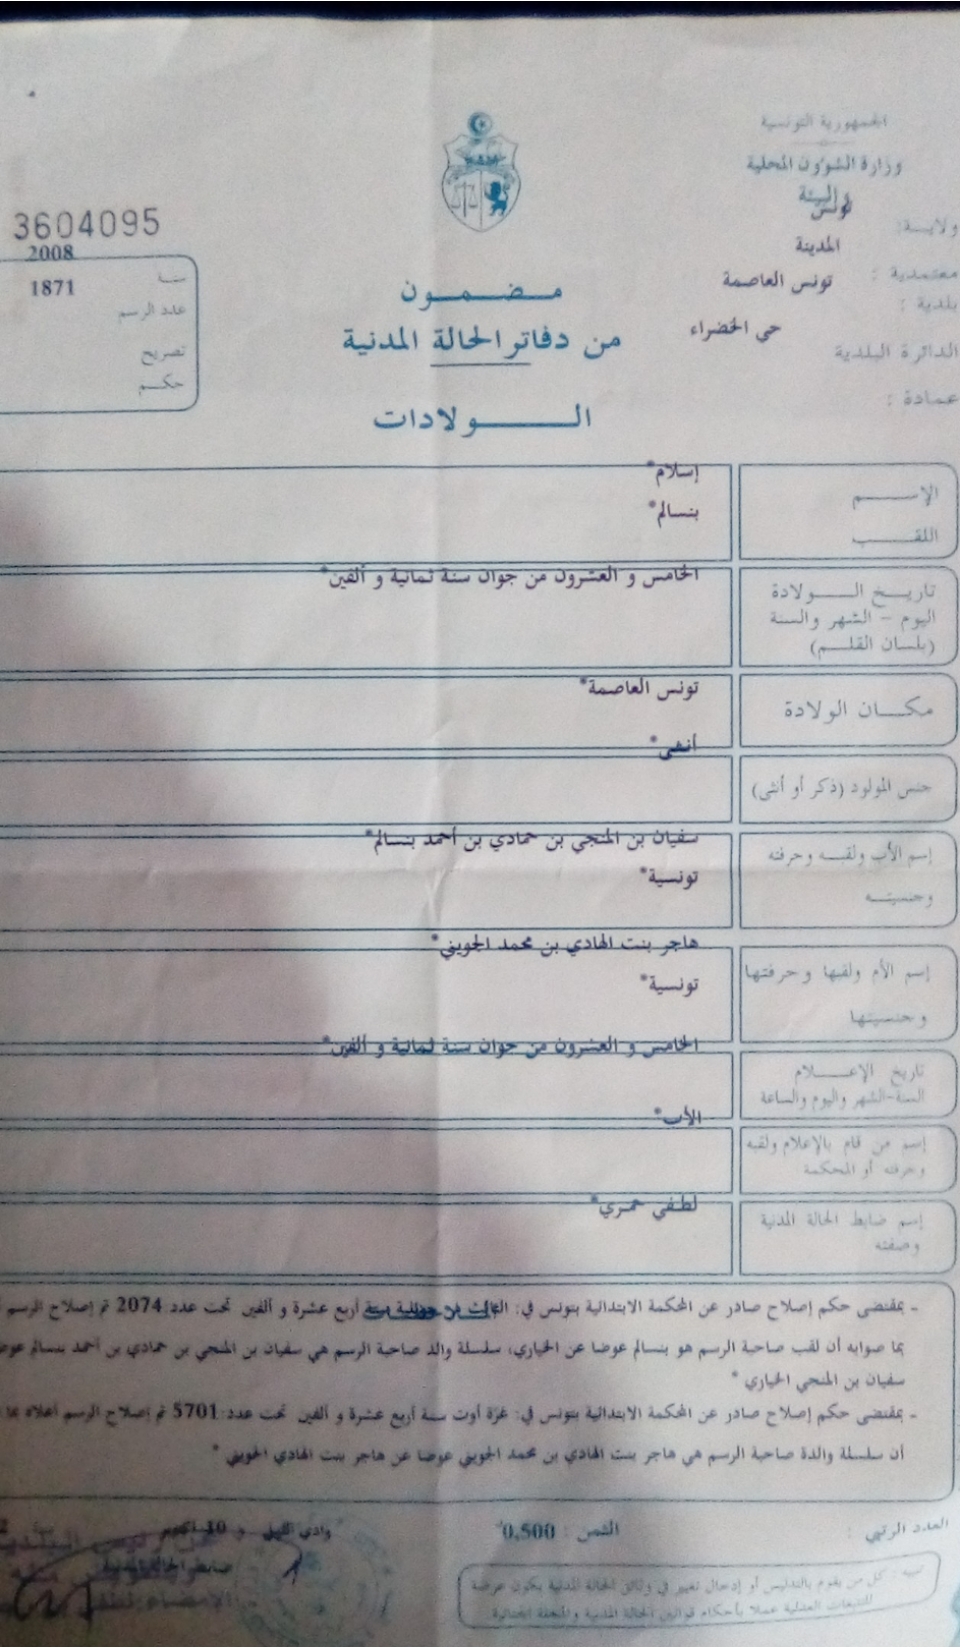 الجمهورية التونسية
وزارة الشؤون المحلية
والبيئة
ولاية: تونس
معتمدية : المدينة
بلدية : تونس العاصمة
الدائرة البلدية حي الخضراء
عمادة :
3604095
سنة 2008
عدد الرسم 1871
تصريح
حكم
مضمون
من دفاتر الحالة المدنية
الولادات
الإسم إسلام*
اللقب بنسالم*
تاريخ الولادة
اليوم - الشهر والسنة
(بلسان القلم)
الخامس و العشرون من جوان سنة ثمانية و ألفين*
مكان الولادة تونس العاصمة*
جنس المولود (ذكر أو أنثى) أنثى*
إسم الأب ولقبه وحرفته
وجنسيته
سفيان بن المنجي بن حمادي بن أحمد بنسالم*
تونسية*
إسم الأم ولقبها وحرفتها
وجنسيتها
هاجر بنت الهادي بن محمد الجويني*
تونسية*
تاريخ الإعلام
السنة-الشهر واليوم والساعة
الخامس و العشرون من جوان سنة ثمانية و ألفين*
إسم من قام بالإعلام ولقبه
وحرفته أو المحكمة
الأب*
إسم ضابط الحالة المدنية
وصفته
لطفي حمري*
- بمقتضى حكم إصلاح صادر عن المحكمة الابتدائية بتونس في: الثالث من جويلية سنة أربع عشرة و ألفين تحت عدد 2074 تم إصلاح الرسم
بما صوابه أن لقب صاحبة الرسم هو بنسالم عوضا عن الخياري، سلسلة والد صاحبة الرسم هي سفيان بن المنجي بن حمادي بن أحمد بنسالم
سفيان بن المنجي الخياري *
- بمقتضى حكم إصلاح صادر عن المحكمة الابتدائية بتونس في: غرّة أوت سنة أربع عشرة و ألفين تحت عدد: 5701 تم إصلاح الرسم أعلاه
أن سلسلة والدة صاحبة الرسم هي هاجر بنت الهادي بن محمد الجويني عوضا عن هاجر بنت الهادي الجويني *
العدد الرتبي :
الثمن : 0,500
وادي الليل
10
ضابط الحالة المدنية
تنبيه : كل من يقوم بالتدليس أو إدخال تغيير في وثائق الحالة المدنية يكون عرضة
للتتبعات العدلية عملا بأحكام قوانين الحالة المدنية والمجلة الجنائية